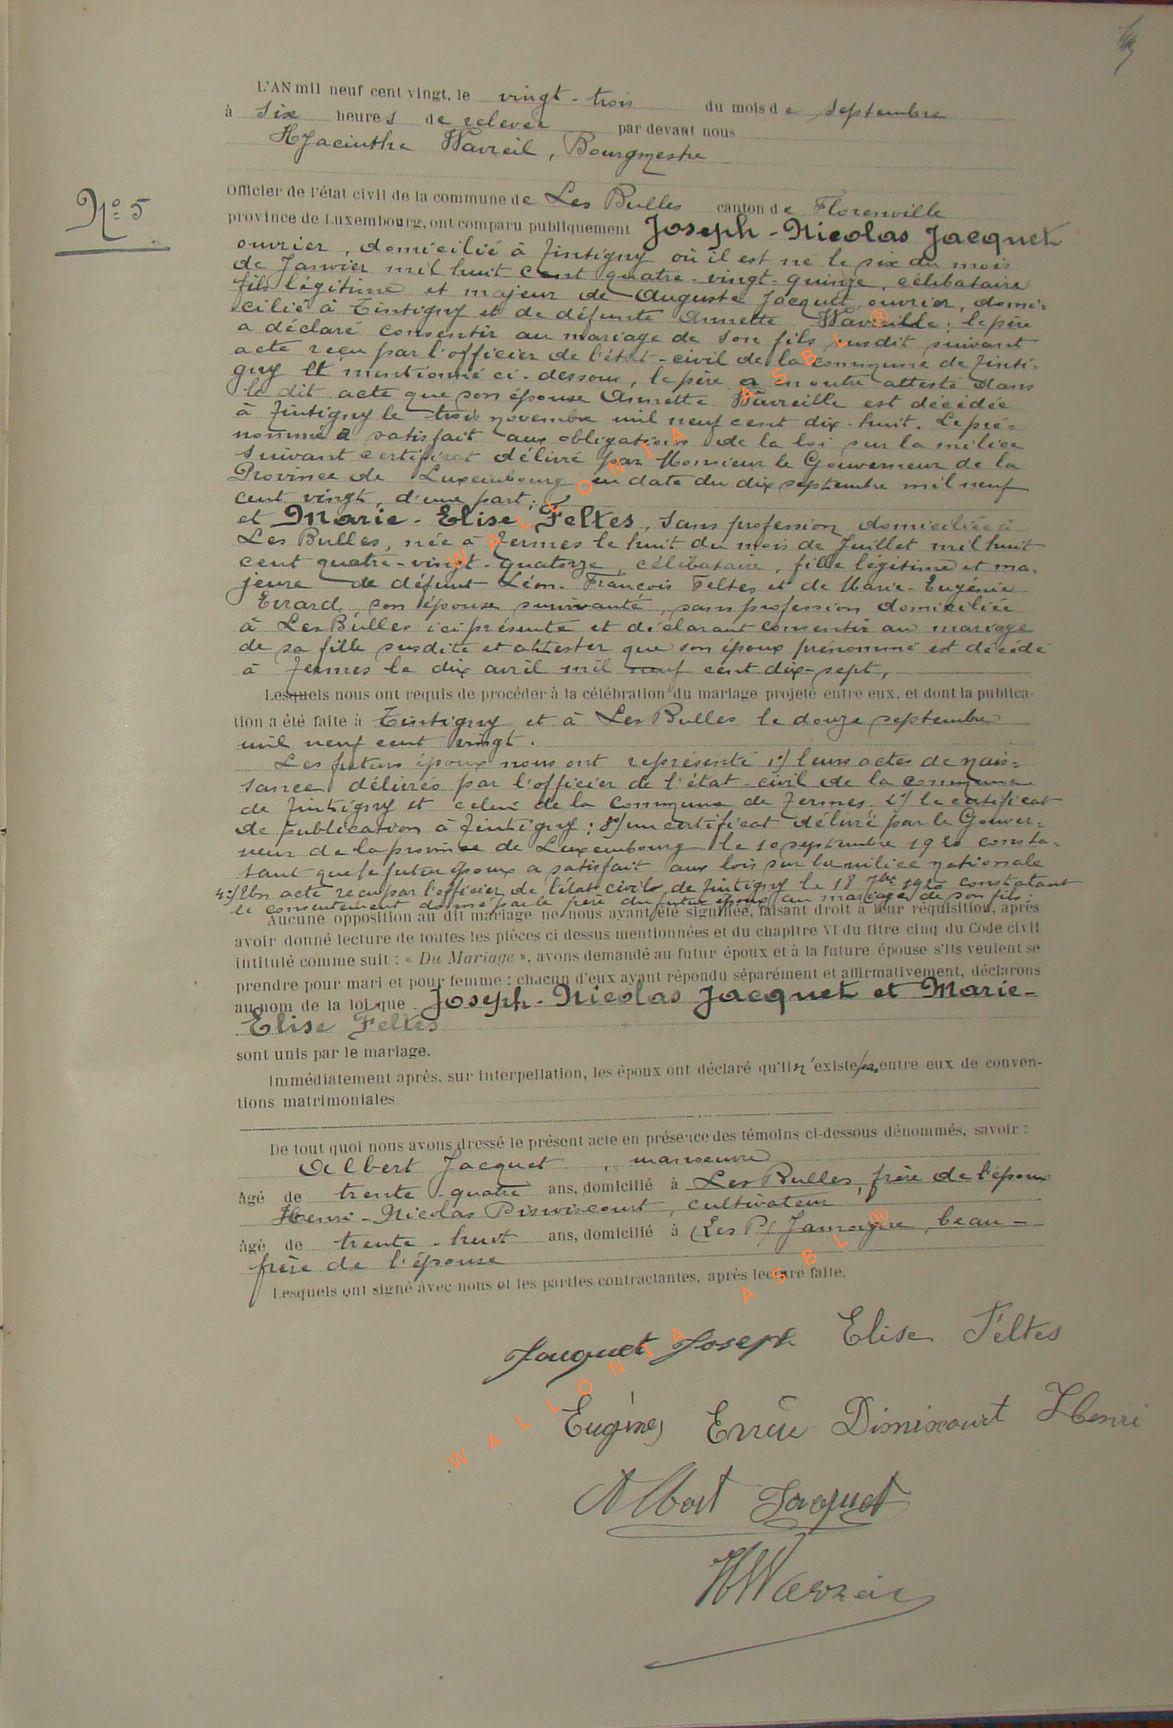 L'AN mil neuf cent vingt, le vingt-trois du mois de Septembre
à Six heures de relevée par devant nous
Hyacinthe Wavreil, Bourgmestre
Officier de l'état civil de la commune de Les Bulles canton de Florenville
N° 5
province de Luxembourg, ont comparu publiquement Joseph-Nicolas Jacquet
ouvrier, domicilié à Tintigny où il est né le six du mois
de Janvier mil huit cent quatre-vingt-quinze, célibataire
fils légitime et majeur de Auguste Jacquet, ouvrier, domi-
cilié à Tintigny et de défunte Annette Wavreille; le père
a déclaré consentir au mariage de son fils susdit suivant
acte reçu par l'officier de l'état-civil de la commune de Tinti-
gny et mentionné ci-dessous, le père a en outre attesté dans
le dit acte que son épouse Annette Wavreille est décédée
à Tintigny le trois novembre mil neuf cent dix-huit. Le pré-
nommé a satisfait aux obligations de la loi sur la milice
suivant certificat délivré par Monsieur le Gouverneur de la
Province de Luxembourg en date du dix septembre mil neuf
cent vingt, d'une part;
et Marie-Elise Feltes, sans profession domiciliée à
Les Bulles, née à Termes le huit du mois de Juillet mil huit
cent quatre-vingt-quatorze, célibataire, fille légitime et ma-
jeure de défunt Léon-François Feltes et de Marie-Eugénie
Errard, son épouse survivante, sans profession domiciliée
à Les Bulles ici présente et déclarant consentir au mariage
de sa fille susdite et attester que son époux prénommé est décédé
à Termes le dix avril mil neuf cent dix-sept,
Lesquels nous ont requis de procéder à la célébration du mariage projeté entre eux, et dont la publica-
tion a été faite à Tintigny et à Les Bulles le douze septembre
mil neuf cent vingt.
Les futurs époux nous ont représenté 1°/ leurs actes de nais-
sance délivrés par l'officier de l'état-civil de la commune
de Tintigny et celui de la Commune de Termes, 2°/ le certificat
de publication à Tintigny; 3°/ un certificat délivré par le Gouver-
neur de la province de Luxembourg le 10 septembre 1920 consta-
tant que le futur époux a satisfait aux lois sur la milice nationale
4°/ Un acte reçu par l'officier de l'état civil de Tintigny le 18 7bre 1920 constatant
le consentement donné par le père du futur époux au mariage de son fils.
Aucune opposition au dit mariage ne nous ayant été signifiée, faisant droit à leur réquisition, après
avoir donné lecture de toutes les pièces ci dessus mentionnées et du chapitre VI du titre cinq du Code civil
intitulé comme suit : « Du Mariage », avons demandé au futur époux et à la future épouse s'ils veulent se
prendre pour mari et pour femme : chacun d'eux ayant répondu séparément et affirmativement, déclarons
au nom de la loi que Joseph-Nicolas Jacquet et Marie-
Elise Feltes
sont unis par le mariage.
Immédiatement après, sur interpellation, les époux ont déclaré qu'il n'existe pas entre eux de conven-
tions matrimoniales
De tout quoi nous avons dressé le présent acte en présence des témoins ci-dessous dénommés, savoir :
Albert Jacquet, manoeuvre
âgé de trente-quatre ans, domicilié à Les Bulles, frère de l'époux
Henri-Nicolas cultivateur
âgé de trente-huit ans, domicilié à Jamoigne, beau-
frère de l'épouse
Lesquels ont signé avec nous et les parties contractantes, après lecture faite.
Jacquet Joseph Elise Feltes
Henri
Albert Jacquet
WALLONIA ASBL ®
WALLONIA ASBL ®